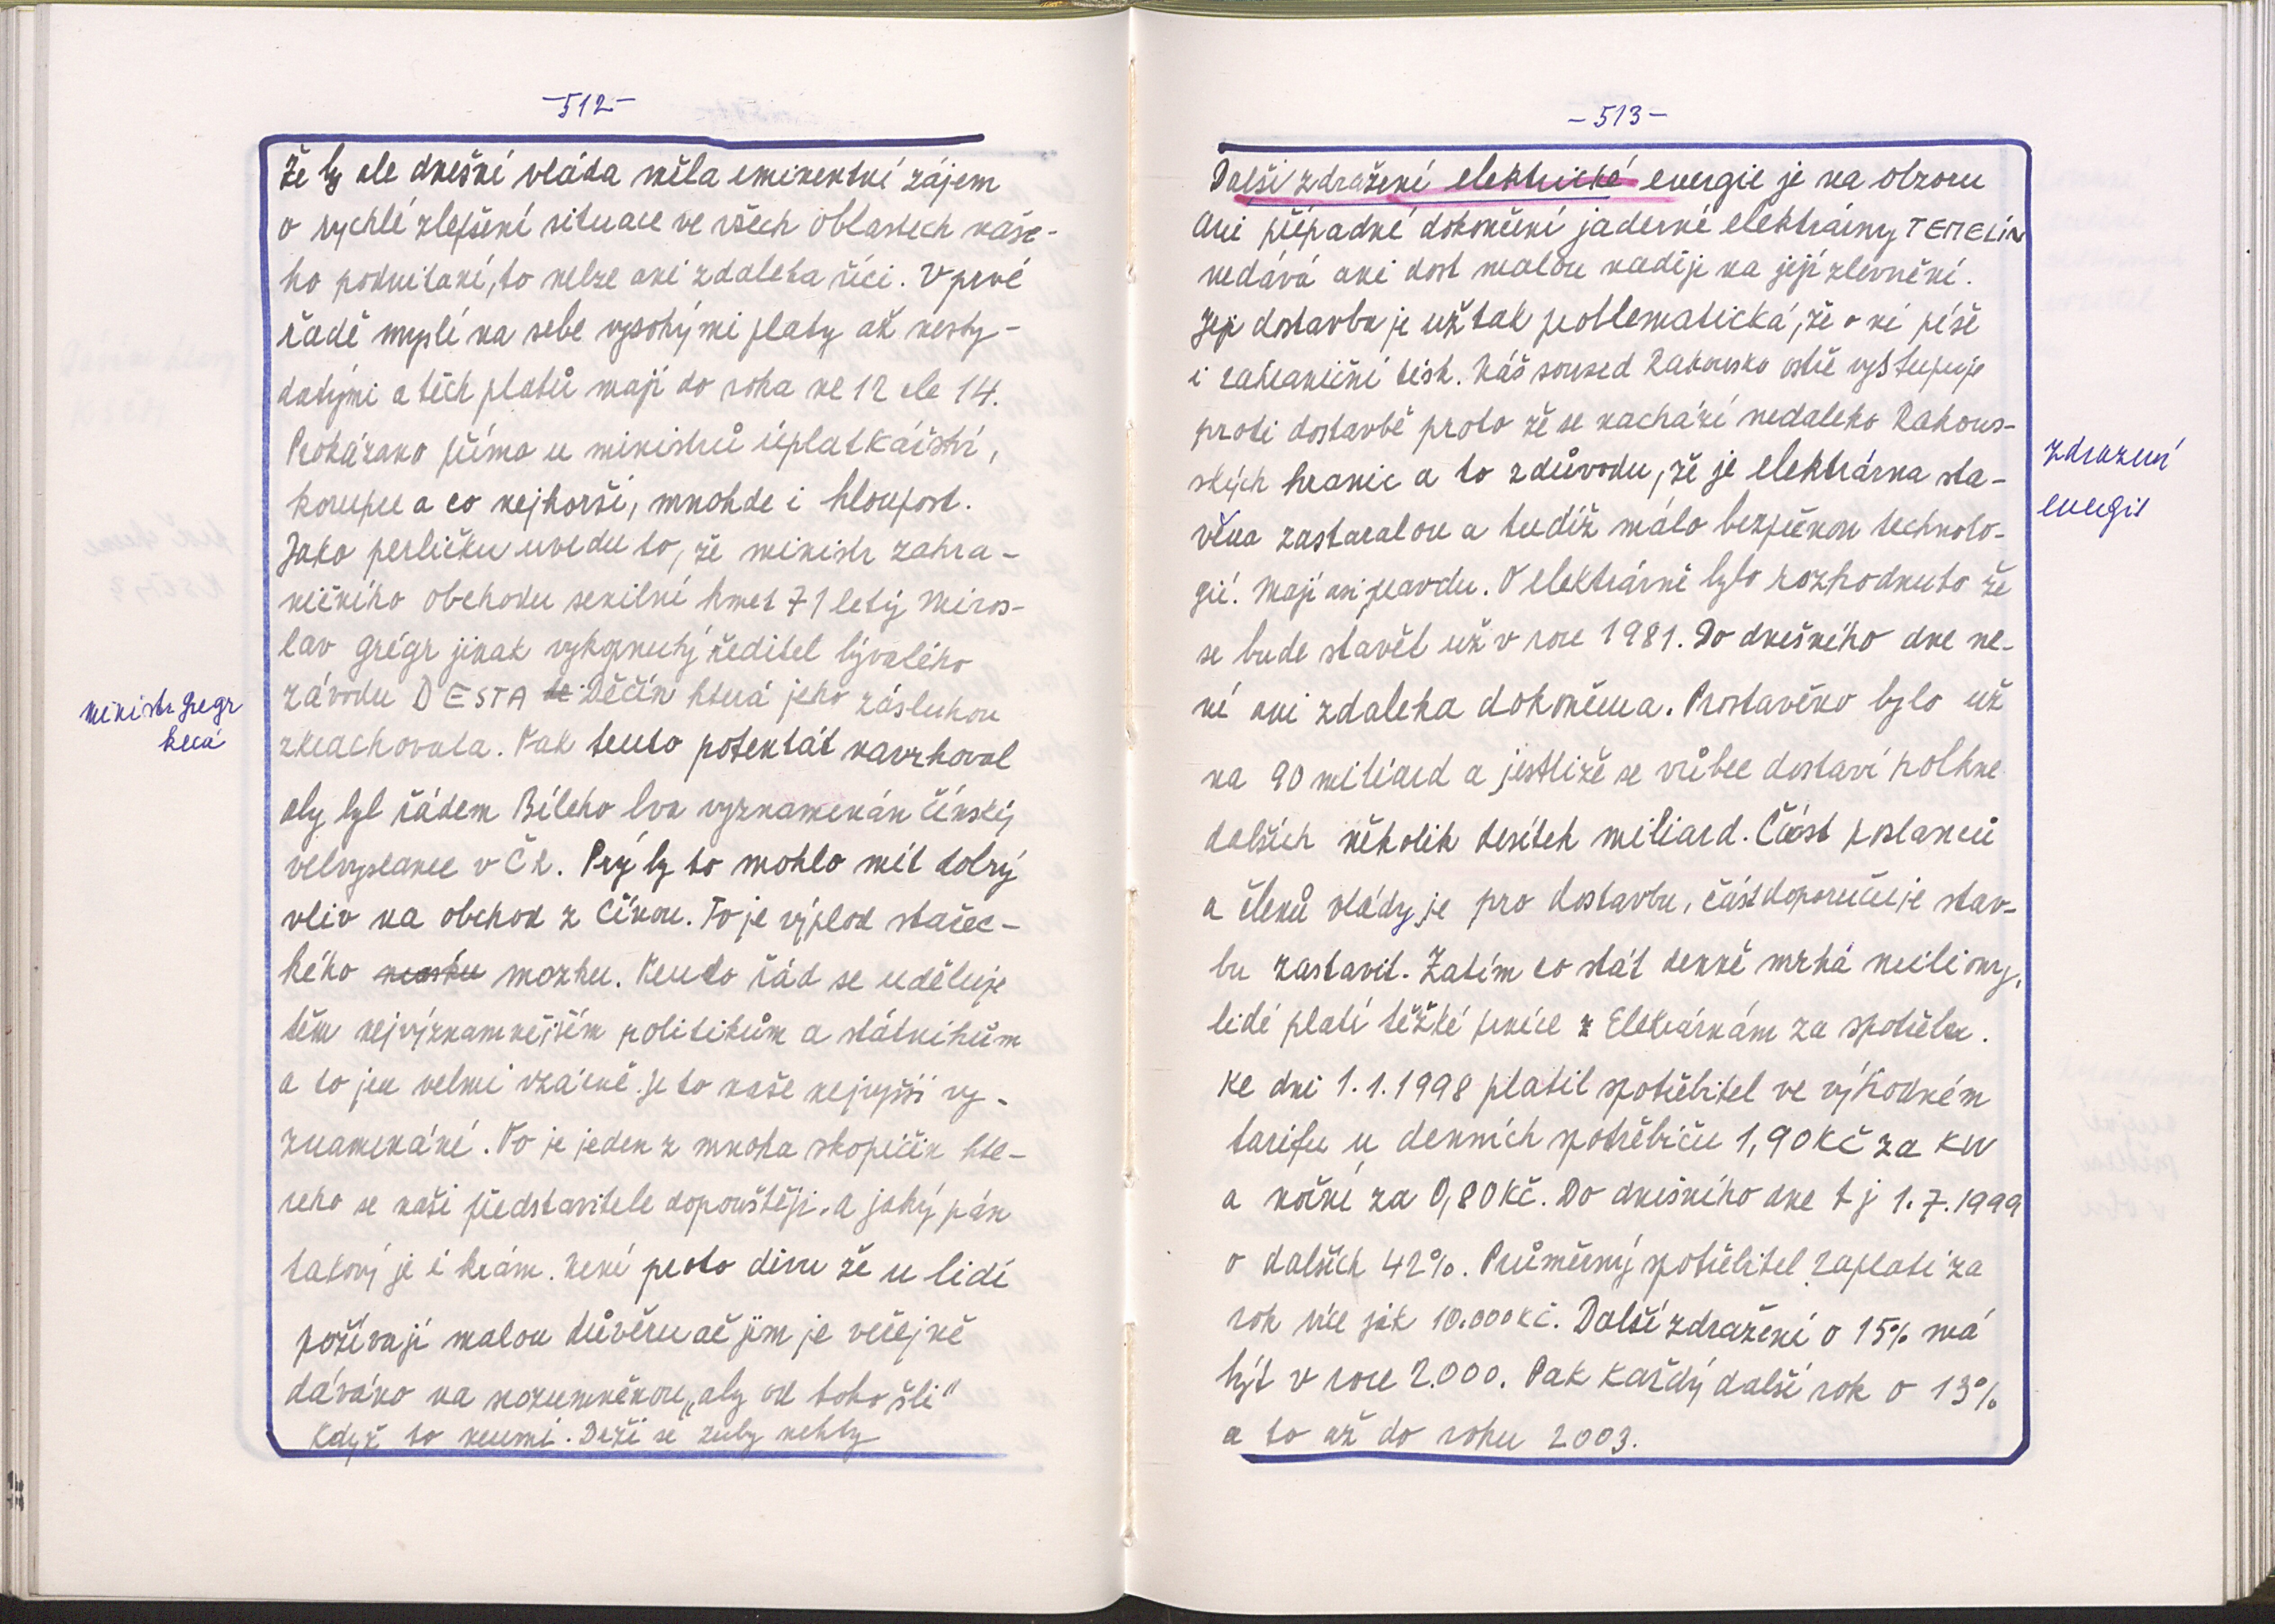 -512-
Že by ale dnešní vláda měla eminentní zájem
o rychlé zlepšení situace ve všech oblastech naše-
ho podnikaní, to nelze ani zdaleka říci. V prvé
řadě myslí na sebe vysokými platy až nesty-
datými a těch platů mají do roka ne 12 ale 14.
Prokázano přímo u ministrů úplatkářství,
korupce a co nejhorší, mnohde i hloupost.
Jako perličku uvedu to, že ministr zahra-
ničního obchodu senilní kmet 71 letý Miros-
lav Grégr jinak vykopnutý ředitel bývalého
závodu DESTA Děčín která jeho zásluhou
zkrachovala. Pak tento potentát navrhoval
aby byl řádem Bílého lva vyznamenán čínský
velvyslanec v ČR. Prý by to mohlo mít dobrý
vliv na obchod z Čínou. To je výplod stařec-
kého mozku. Tento řád se uděluje
těm nejvýznamnějším politikům a státníkům
a to jen velmi vzácně. Je to naše nejvyšší vy-
znamenání. To je jeden z mnoha skopičin kte-
reho se naši představitele dopouštějí. A jaký pán
takový je i krám. Není proto divu že u lidí
požívají malou důvěru ač jim je veřejně
dáváno na srozumněnou „aby od toho šli"
Když to neumí. Drží se zuby nehty
ministr Gregr
kecá
-513-
Další zdražení elektrické energie je na obzoru
Ani případné dokončení jaderné elektrárny TEMELÍN
nedává ani dost malou naději na její zlevnění.
Její dostavba je už tak problematická, že o ní píše
i zahraniční tisk. Náš soused Rakousko ostře vystupuje
proti dostavbě proto že se nachází nedaleko Rakous-
ských hranic a to zdůvodu, že je elektrárna sta-
věna zastaralou a tudíž málo bezpečnou technolo-
gií. Mají asi pravdu. O elektrárně bylo rozhodnuto že
se bude stavět už v roce 1981. Do dnešního dne ne-
ní ani zdaleka dokončena. Prostavěno bylo už
na 90 miliard a jestliže se vůbec dostaví polkne
dalších několik desítek miliard. Část poslanců
a členů vlády je pro dostavbu, část doporučuje stav-
bu zastavit. Zatím co stát denně mrhá miliony,
lidé platí těžké peníze Elektrárnám za spotřebu.
Ke dni 1.1.1998 platil spotřebitel ve výhodném
tarifu u denních spotřebiču 1,90 Kč za KW
a noční za 0,80 Kč. Do dnešního dne t j 1.7.1999
o dalších 42%. Průměrný spotřebitel zaplatí za
rok více jak 10.000 Kč. Další zdražení o 15% má
být v roce 2.000. Pak každý další rok o 13%
a to až do roku 2003.
zdrazení
energie